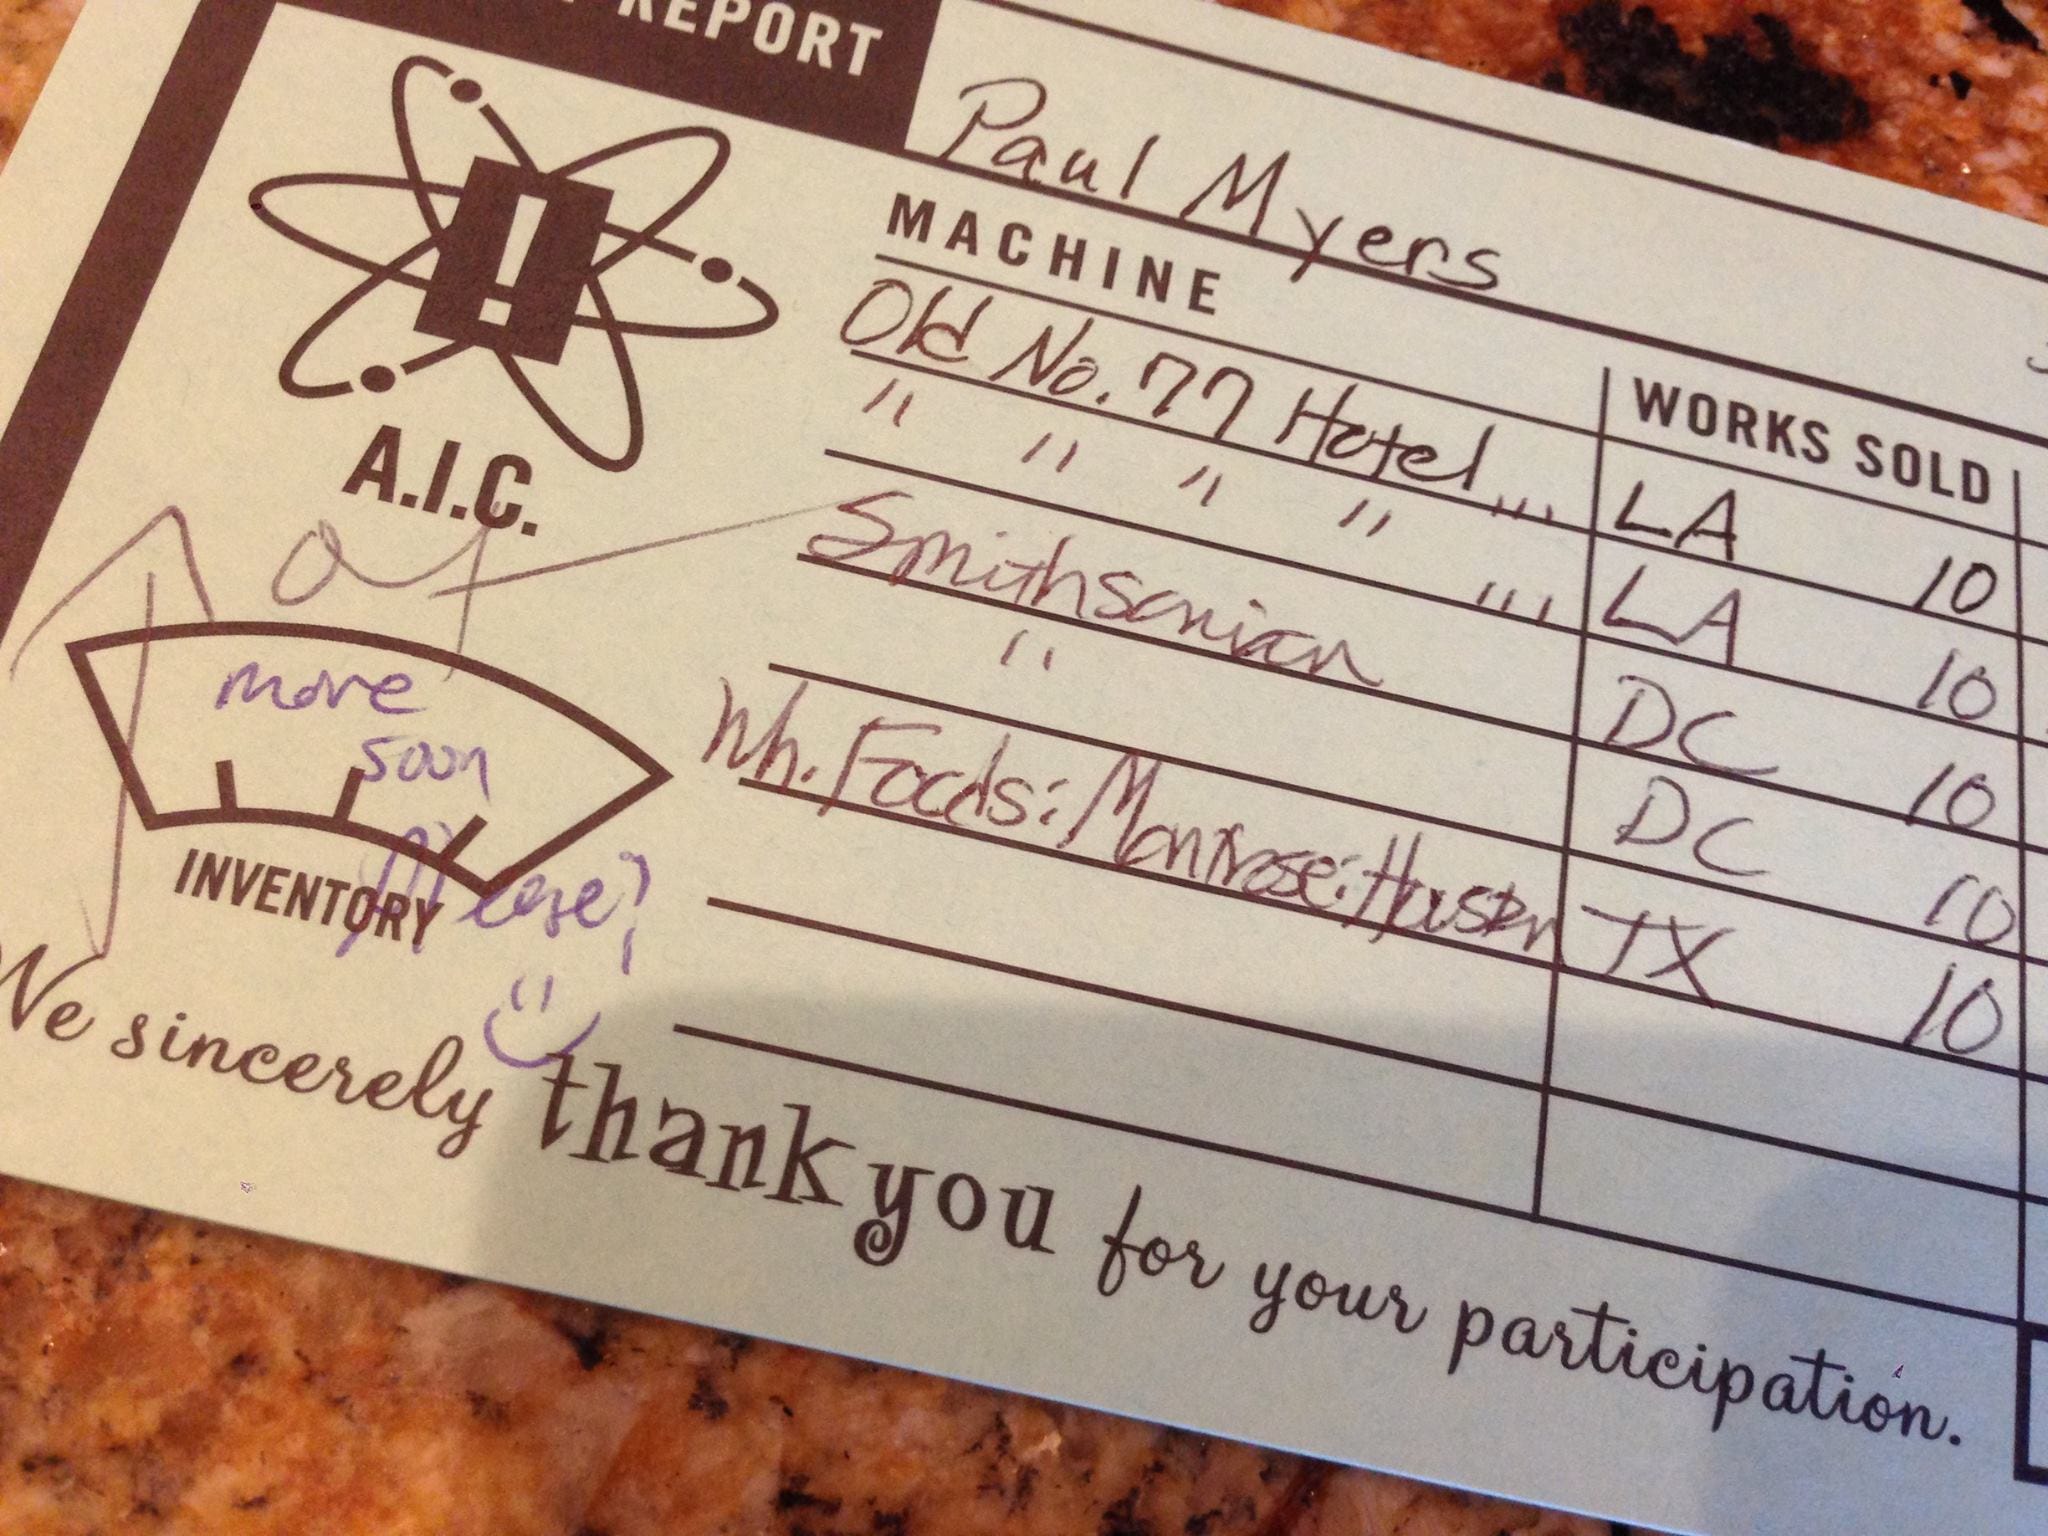 REPORT
Paul Myers
MACHINE WORKS SOLD
Old No. 77 Hotel ... LA 10
" " " " ''' LA 10
Smithsonian DC 10
" DC 10
Wh. Foods: Montrose: Houston TX 10
!
A.I.C.
more
soon
please?
INVENTORY
We sincerely thank you for your participation.